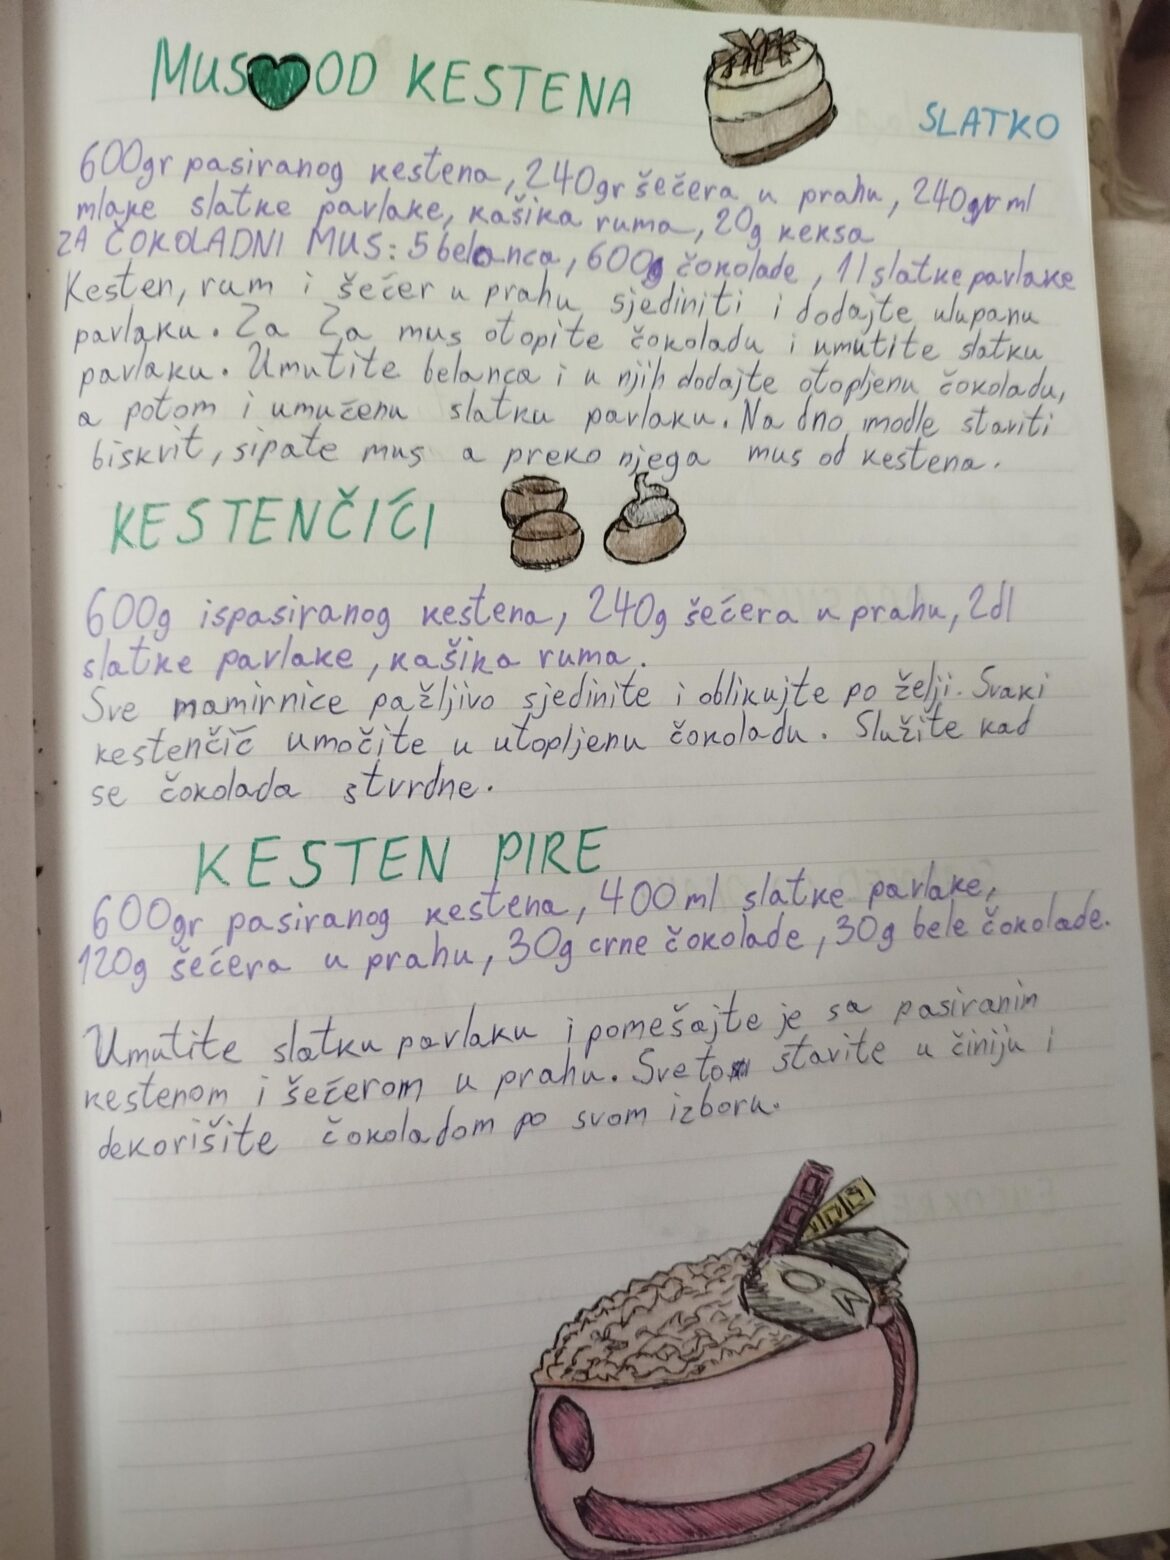 MUS OD KESTENA
SLATKO
600gr pasiranog kestena, 240gr šećera u prahu, 240 ml
mlake slatke pavlake, kašika ruma, 20g keksa
ZA ČOKOLADNI MUS: 5 belanca, 600g čokolade, 1l slatke pavlake
Kesten, rum i šećer u prahu sjediniti i dodajte ulupanu
pavlaku. Za Za mus otopite čokoladu i umutite slatku
pavlaku. Umutite belanca i u njih dodajte otopljenu čokoladu,
a potom i umućenu slatku pavlaku. Na dno modle staviti
biskvit, sipate mus a preko njega mus od kestena.
KESTENČIĆI
600g ispasiranog kestena, 240g šećera u prahu, 2dl
slatke pavlake, kašika ruma.
Sve mamirnice pažljivo sjedinite i oblikujte po želji. Svaki
kestenčić umočite u utopljenu čokoladu. Služite kad
se čokolada stvrdne.
KESTEN PIRE
600gr pasiranog kestena, 400ml slatke pavlake,
120g šećera u prahu, 30g crne čokolade, 30g bele čokolade.
Umutite slatku pavlaku i pomešajte je sa pasiranim
kestenom i šećerom u prahu. Sve to stavite u činiju i
dekorišite čokoladom po svom izboru.